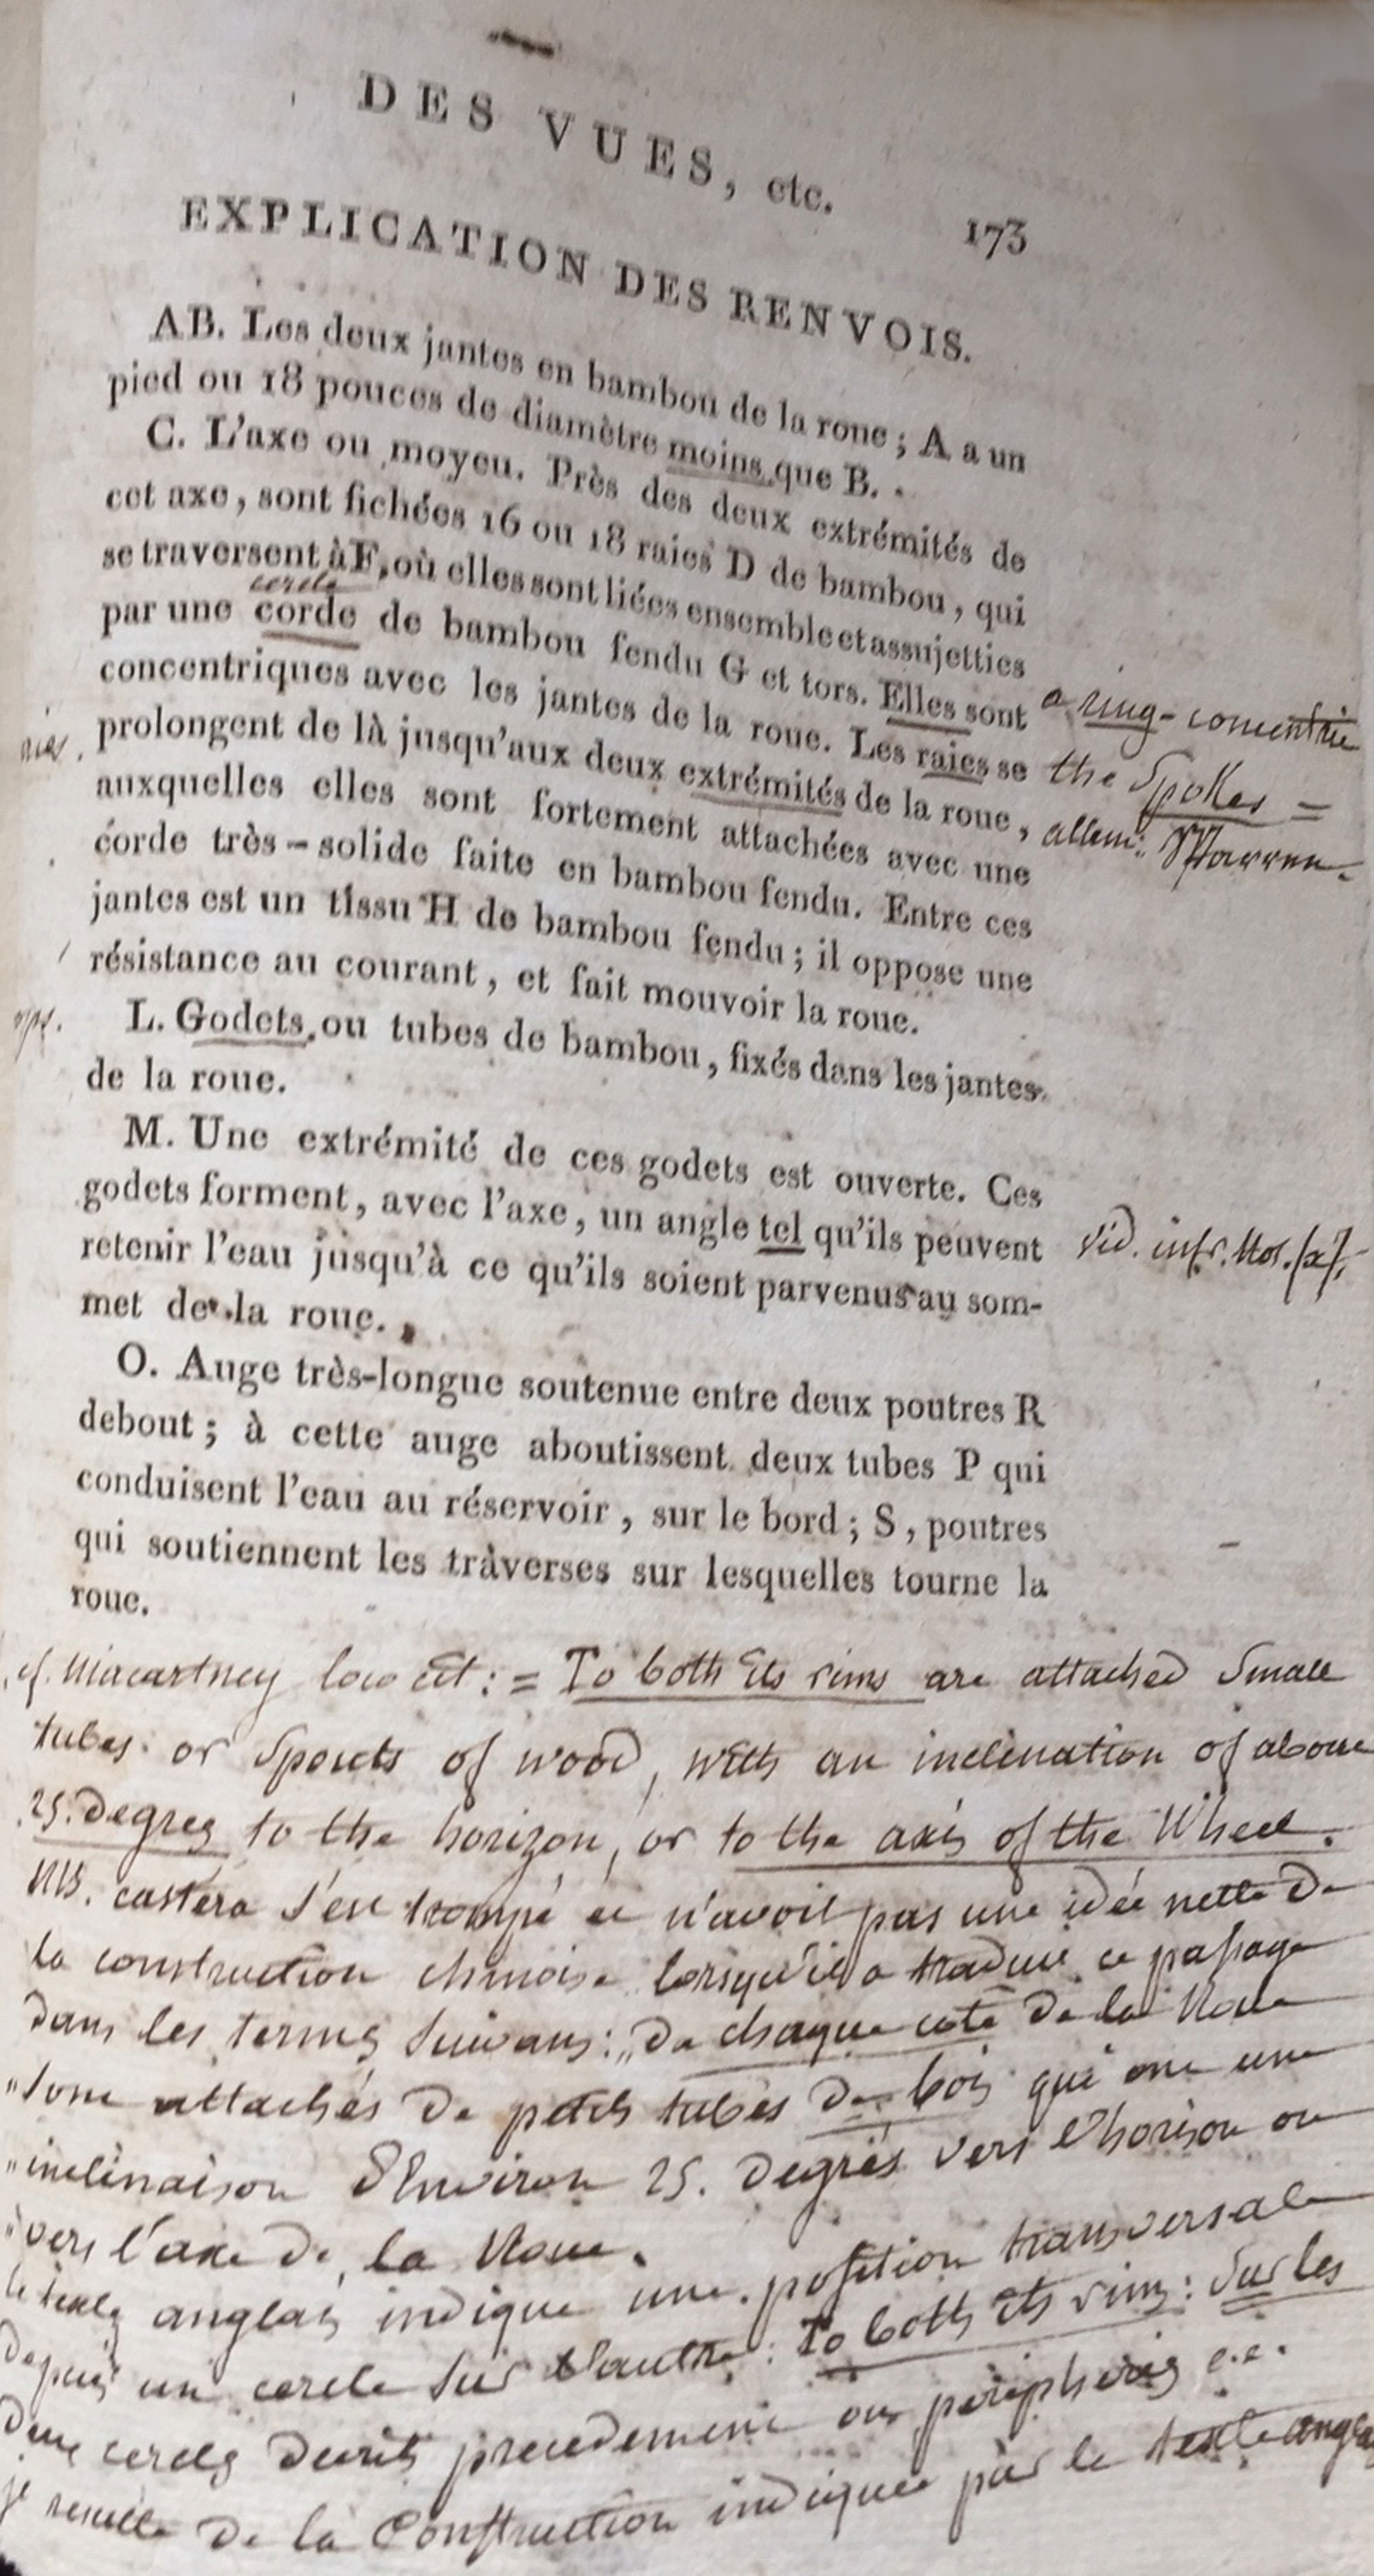 DES VUES, etc.
173
EXPLICATION DES RENVOIS.
AB. Les deux jantes en bambou de la roue ; A a un
pied ou 18 pouces de diamètre moins que B.
C. L'axe ou moyeu. Près des deux extrémités de
cet axe, sont fichées 16 ou 18 raies D de bambou, qui
se traversent à F, où elles sont liées ensemble et assujetties
cercle
par une corde de bambou fendu G et tors. Elles sont
a ring - concentric
concentriques avec les jantes de la roue. Les raies se
the Spokes =
prolongent de là jusqu'aux deux extrémités de la roue,
allem:
auxquelles elles sont fortement attachées avec une
corde très-solide faite en bambou fendu. Entre ces
jantes est un tissu H de bambou fendu ; il oppose une
résistance au courant, et fait mouvoir la roue.
L. Godets, ou tubes de bambou, fixés dans les jantes
de la roue.
M. Une extrémité de ces godets est ouverte. Ces
godets forment, avec l'axe, un angle tel qu'ils peuvent
vid. infr. Not. (x)
retenir l'eau jusqu'à ce qu'ils soient parvenus au som-
met de la roue.
O. Auge très-longue soutenue entre deux poutres R
debout ; à cette auge aboutissent deux tubes P qui
conduisent l'eau au réservoir, sur le bord ; S, poutres
qui soutiennent les traverses sur lesquelles tourne la
roue.
cf. Macartney loco cit: = To both its rims are attached small
tubes or spouts of wood, with an inclination of about
25. degres to the horizon, or to the axis of the Wheel.
NB. castera s'est trompé et n'avoit pas une idée nette de
la construction chinoise lorsqu'il a traduit ce passage
dans les termes suivans: „De chaque coté de la Roue
„sont attachés de petits tubes de bois qui ont une
„inclinaison d'Environ 25. degrés vers l'horison ou
„vers l'axe de la Roue.
le texte anglais indique une position transversale
depuis un cercle sur l'autre: To both its rims: Sur les
deux cercles decrits precedement ou peripheries e.c.
resulte de la Construction indiquée par le texte anglais